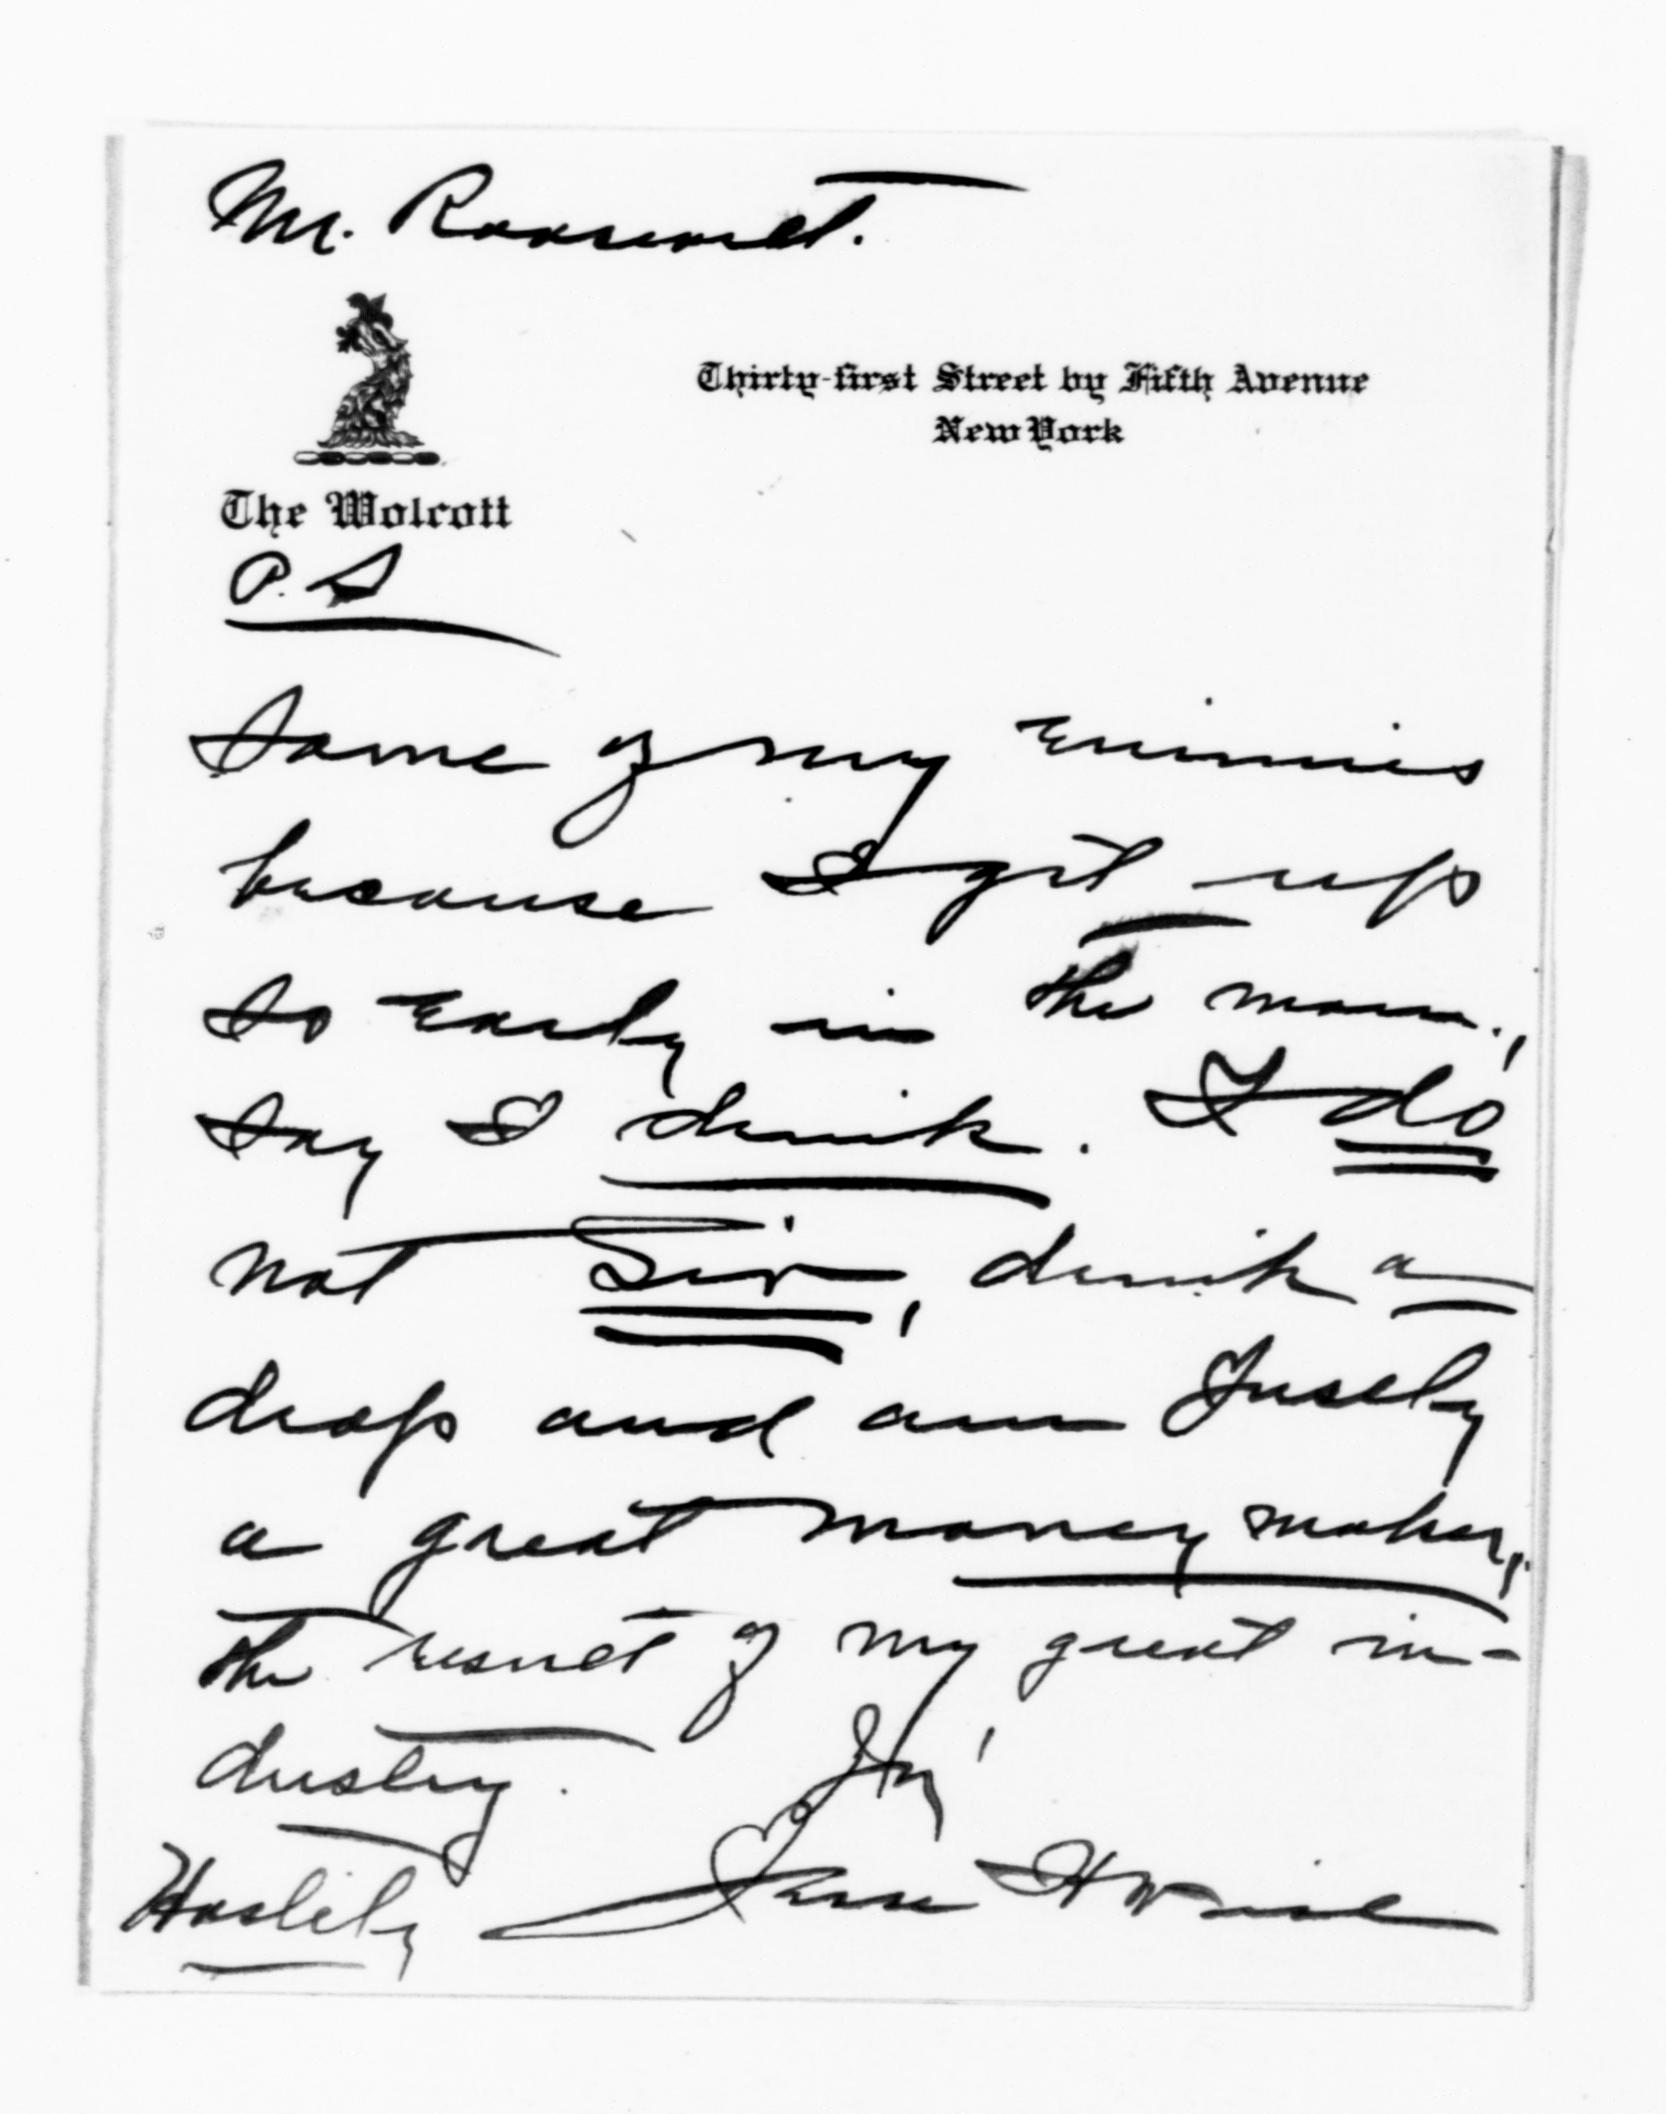 Mr. Roosevelt.
Thirty-first Street by Fifth Avenue
New York
The Wolcott
P.S
Some of my enimies
because I get up
so early in the morn.,
say I drink. I do
not Sir, drink a
drop and am Justly
a great money maker,
the result of my great in-
dustry.
Hastily